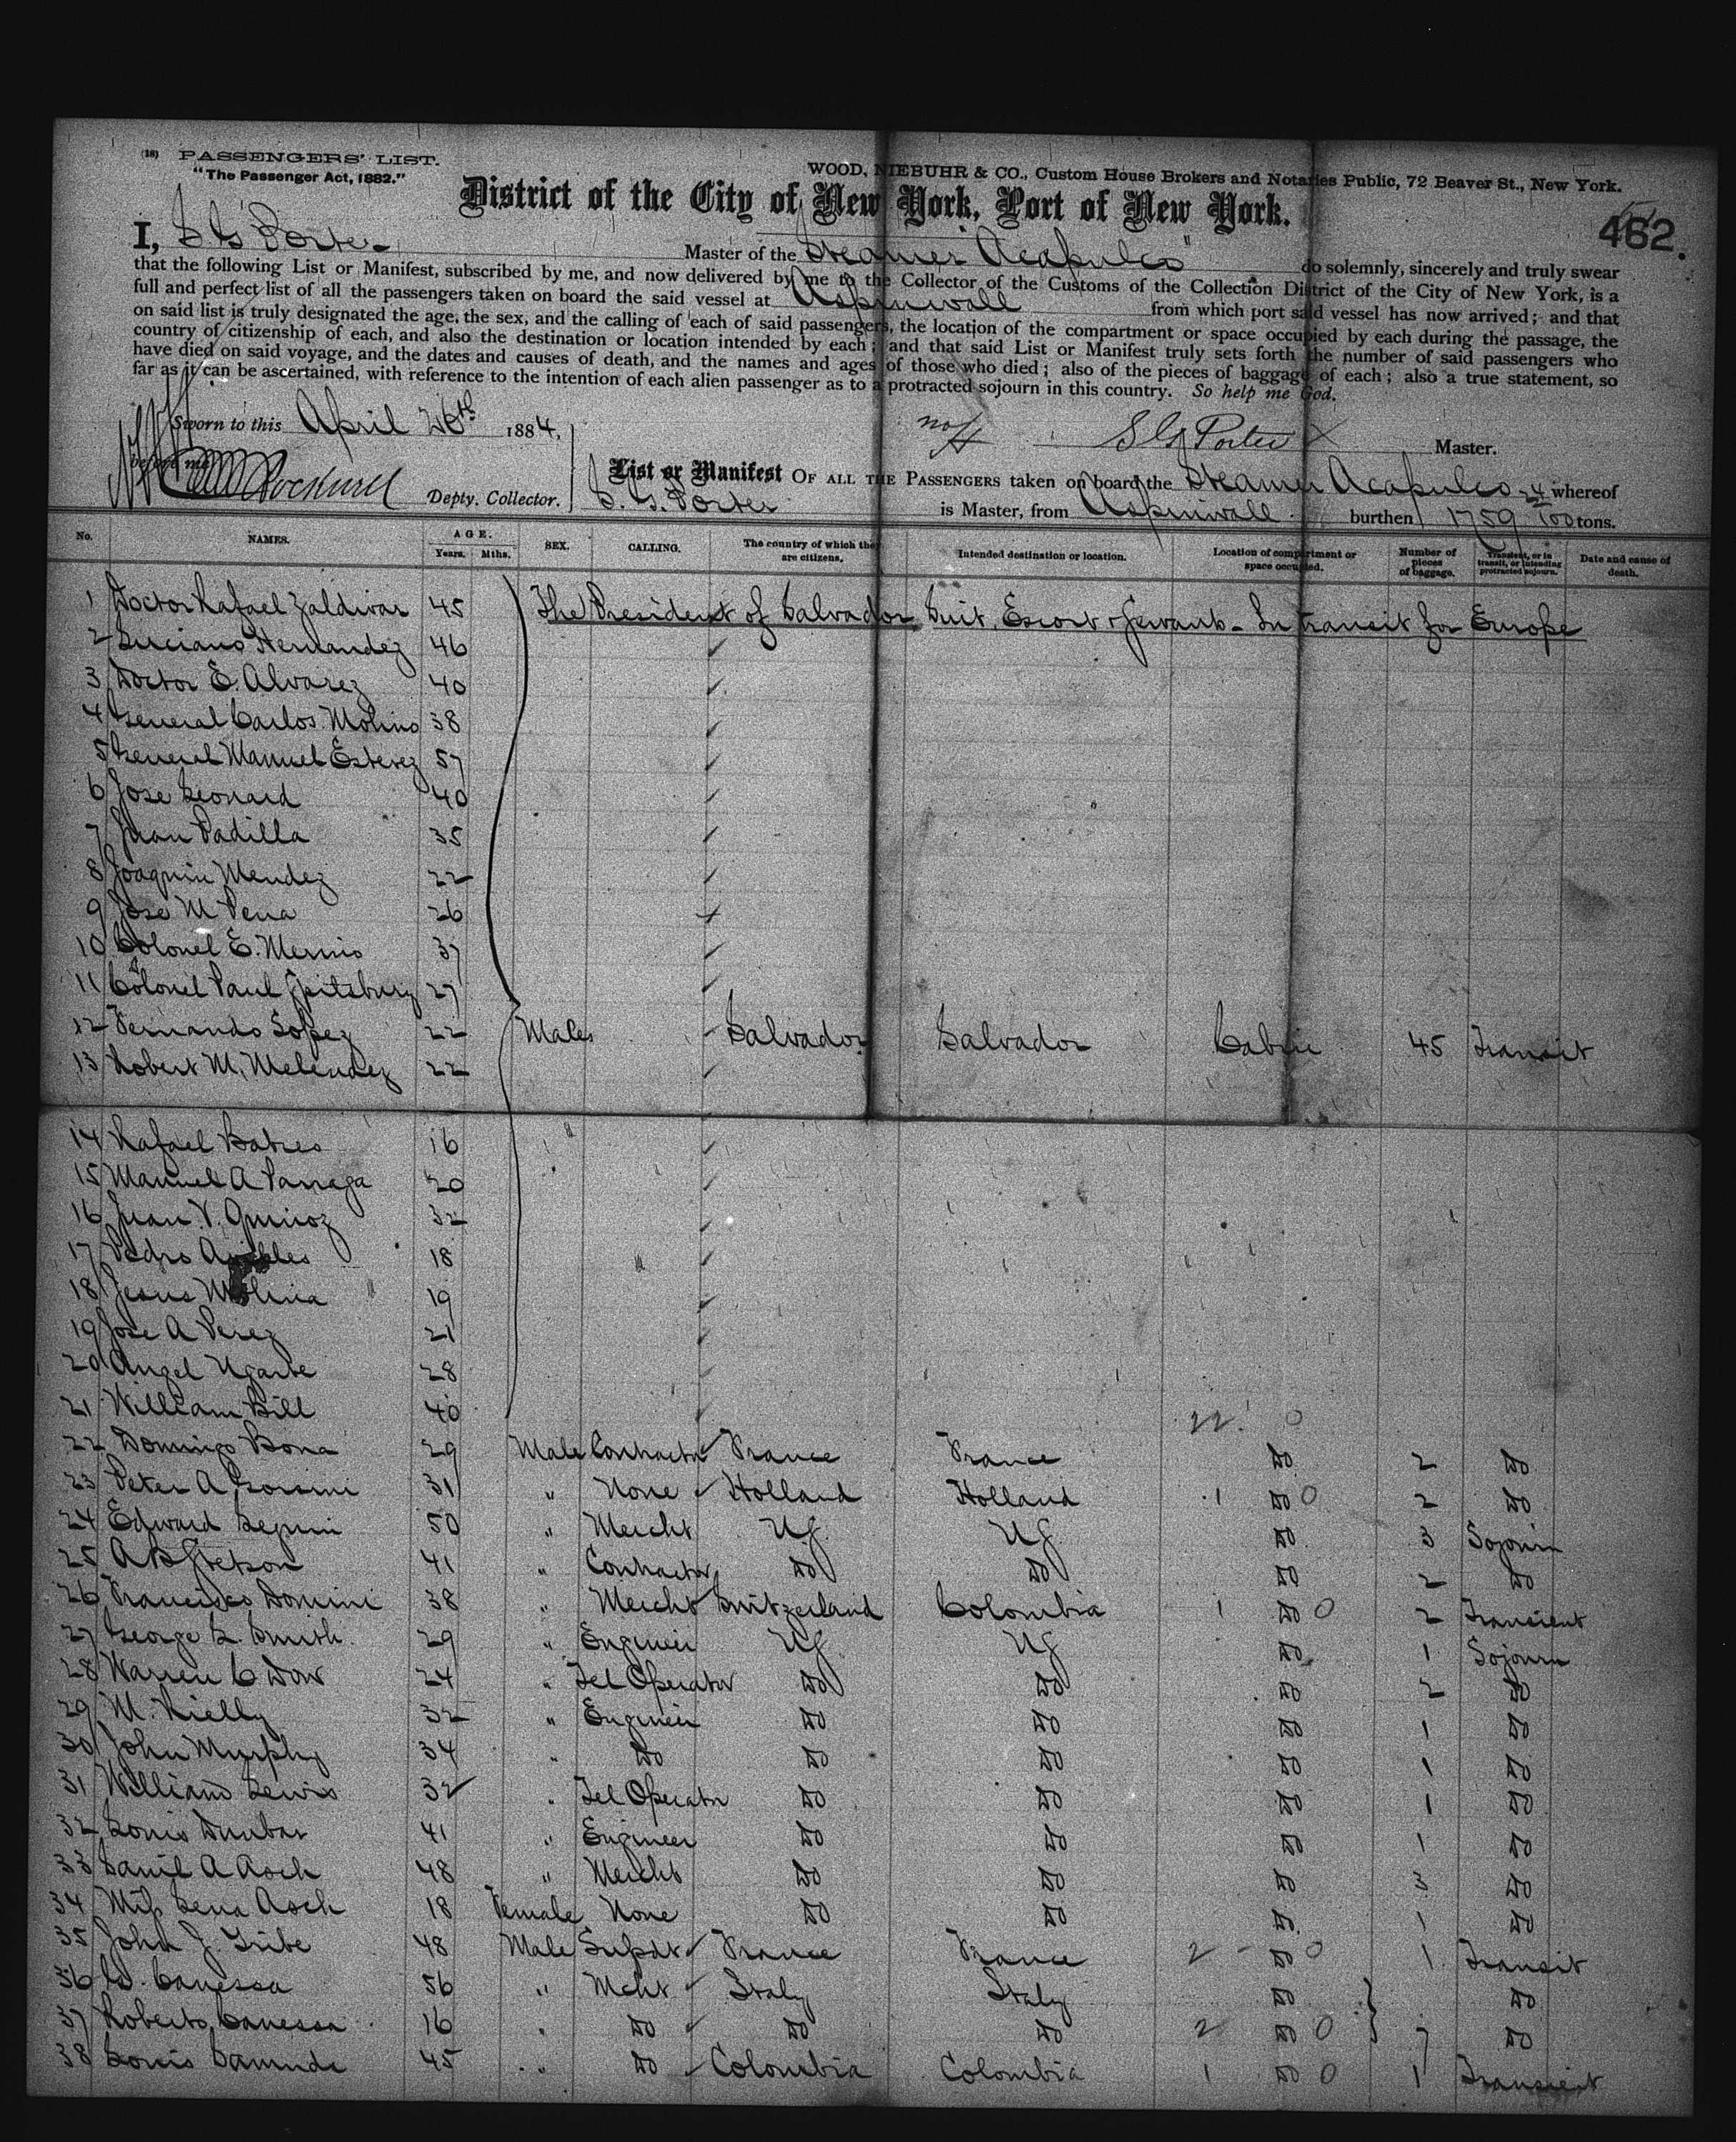 (18) PASSENGERS' LIST.
"The Passenger Act, 1882."
WOOD, NIEBUHR & CO., Custom House Brokers and Notaries Public, 72 Beaver St., New York.
District of the City of New York, Port of New York.
462.
I, S G Porter Master of the Steamer "Acapulco" do solemnly, sincerely and truly swear
that the following List or Manifest, subscribed by me, and now delivered by me to the Collector of the Customs of the Collection District of the City of New York, is a
full and perfect list of all the passengers taken on board the said vessel at Aspinwall from which port said vessel has now arrived; and that
on said list is truly designated the age, the sex, and the calling of each of said passengers, the location of the compartment or space occupied by each during the passage, the
country of citizenship of each, and also the destination or location intended by each; and that said List or Manifest truly sets forth the number of said passengers who
have died on said voyage, and the dates and causes of death, and the names and ages of those who died; also of the pieces of baggage of each; also a true statement, so
far as it can be ascertained, with reference to the intention of each alien passenger as to a protracted sojourn in this country. So help me God.
Sworn to this April 26th 1884,
S G Porter Master.
before me
Depty. Collector.
List or Manifest OF ALL THE PASSENGERS taken on board the Steamer Acapulco whereof
S. G. Porter is Master, from Aspinwall burthen 1759 24/100 tons.
No. NAMES. AGE. Years. Mths. SEX. CALLING. The country of which they are citizens. Intended destination or location. Location of compartment or space occupied. Number of pieces of baggage. Transient, or in transit, or intending protracted sojourn. Date and cause of death.
1 Doctor Rafael Zaldivar 45 The President of Salvador Suit, Escort & Servants - In transit for Europe
2 Luciano Hernandez 46
3 Doctor E. Alvarez 40
4 General Carlos Molino 38
5 General Manuel Esterez 57
6 Jose Leonard 40
7 Juan Padilla 35
8 Joaquin Mendez 22
9 Jose M Pena 26
10 Colonel E. 37
11 Colonel Paul 27
12 Fernando Lopez 22 Males Salvador Salvador Cabin 45 Transit
13 Robert M. Melendez 22
14 Rafael Batres 16
15 Manuel A Parraga 20
16 Juan V. Quiroz 32
17 Pedro 18
18 Jesus Molina 19
19 Jose A Perez 21
20 Angel Ugarte 28
21 William Bill 40 22. 0
22 Domingo Bona 29 Male Contractr France France Do 2 Do
23 Peter A 31 " None Holland Holland 1 Do 0 2 Do
24 Edward Seguin 50 " Mercht US US Do 3 Sojourn
25 A B Stetson 41 " Contractor Do Do Do 2 Do
26 Francisco Domini 38 " Mercht Switzerland Colombia 1 Do 0 2 Transient
27 George L. Smith 29 " Engineer US US Do 1 Sojourn
28 Warren C Dow 24 " Tel Operator Do Do Do 2 Do
29 M. Kielly 32 " Engineer Do Do Do 1 Do
30 John Murphy 34 " Do Do Do Do 1 Do
31 William Lewis 32 " Tel Operator Do Do Do 1 Do
32 Louis Dunbar 41 " Engineer Do Do Do 1 Do
33 Danil A Asch 48 " Mercht Do Do Do 3 Do
34 Miss Lena Asch 18 Female None Do Do Do 1 Do
35 John J. Tribe 48 Male Supdt France France 2 Do 0 1 Transit
36 G. Canessa 56 " Mcht Italy Italy Do Do
37 Roberto Canessa 16 " Do Do Do 2 Do 0 7 Do
38 Louis 45 " Do Colombia Colombia 1 Do 0 1 Transient